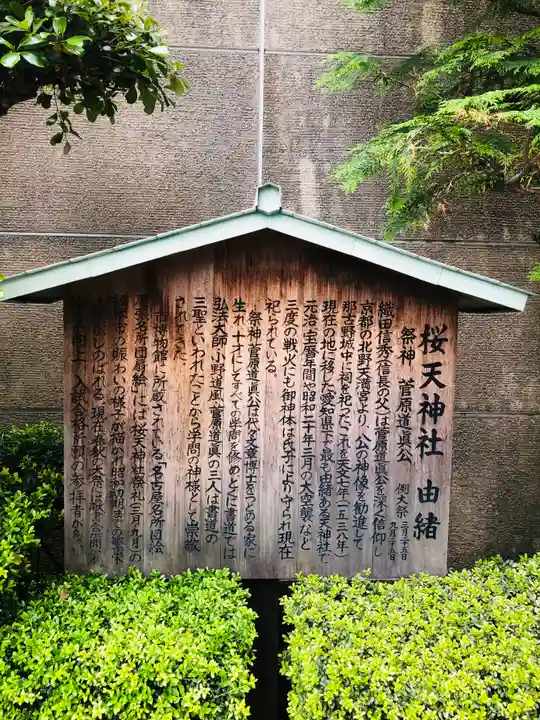 桜天神社 由緒
祭神 菅原道真公
例大祭 三月二十五日
九月二十五日
織田信秀(信長の父)は菅原道真公を深く信仰し
京都の北野天満宮より、公の神像を勧進して
那古野城中に祠を祀った。これを天文七年(一五三八年)
現在の地に移した愛知県下で最も由緒ある天神社で、
元治、宝暦年間や昭和二十年三月の大空襲など
三度の戦火にも御神体は氏子により守られ現在
祀られている。
祭神 菅原道真公は代々文章博士をつとめる家に
生れ、十才にしてすべての学問を修め、とくに書道では
弘法大師、小野道風、菅原道真の三人は書道の
三聖といわれたことから学問の神様として崇敬
されてきた。
市博物館に所蔵されている「名古屋名所図絵
尾張名所団扇絵」には、桜天神社祭礼(三月、九月)の
植木市の賑わいの様子が描かれ、昭和初期までの
しのばれる。現在、春秋の大祭には献
向上、入試合格祈願の参拝者が多い。